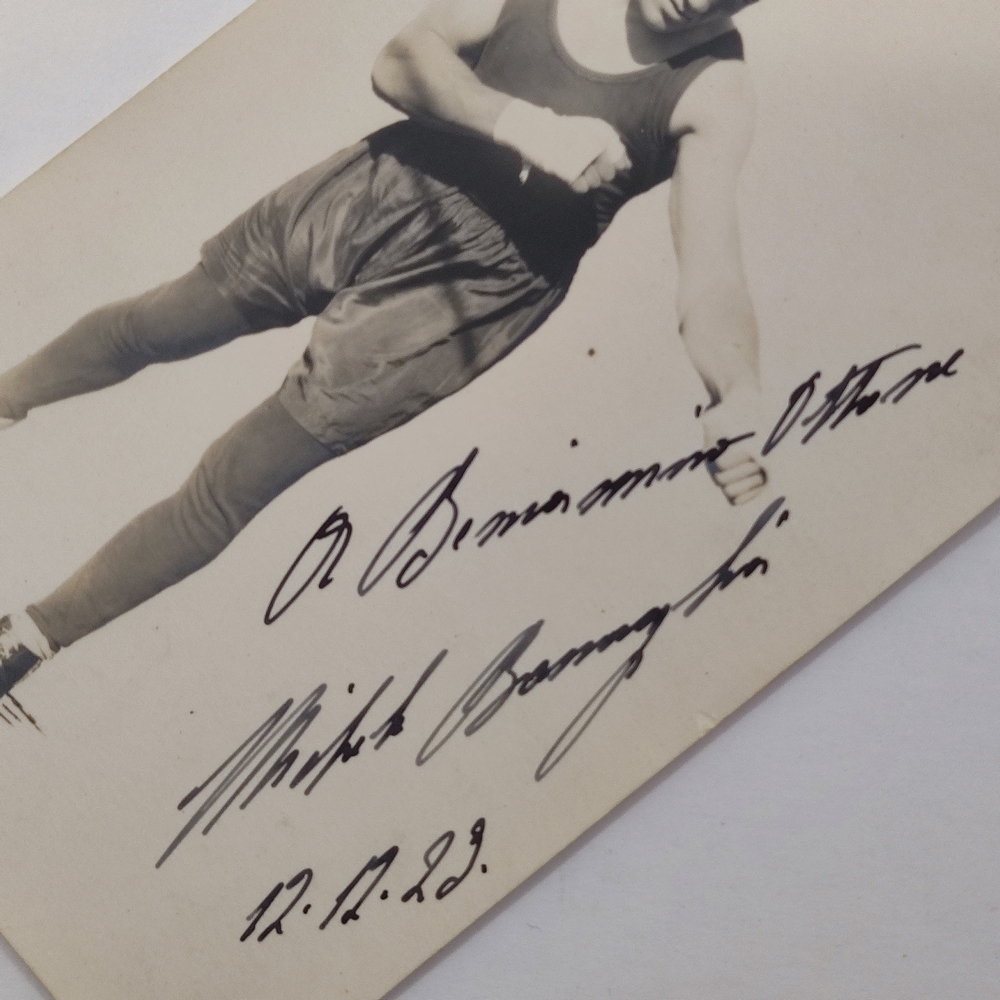 A Beniamino Ottone
Michele Bonaglia
12.12.23.